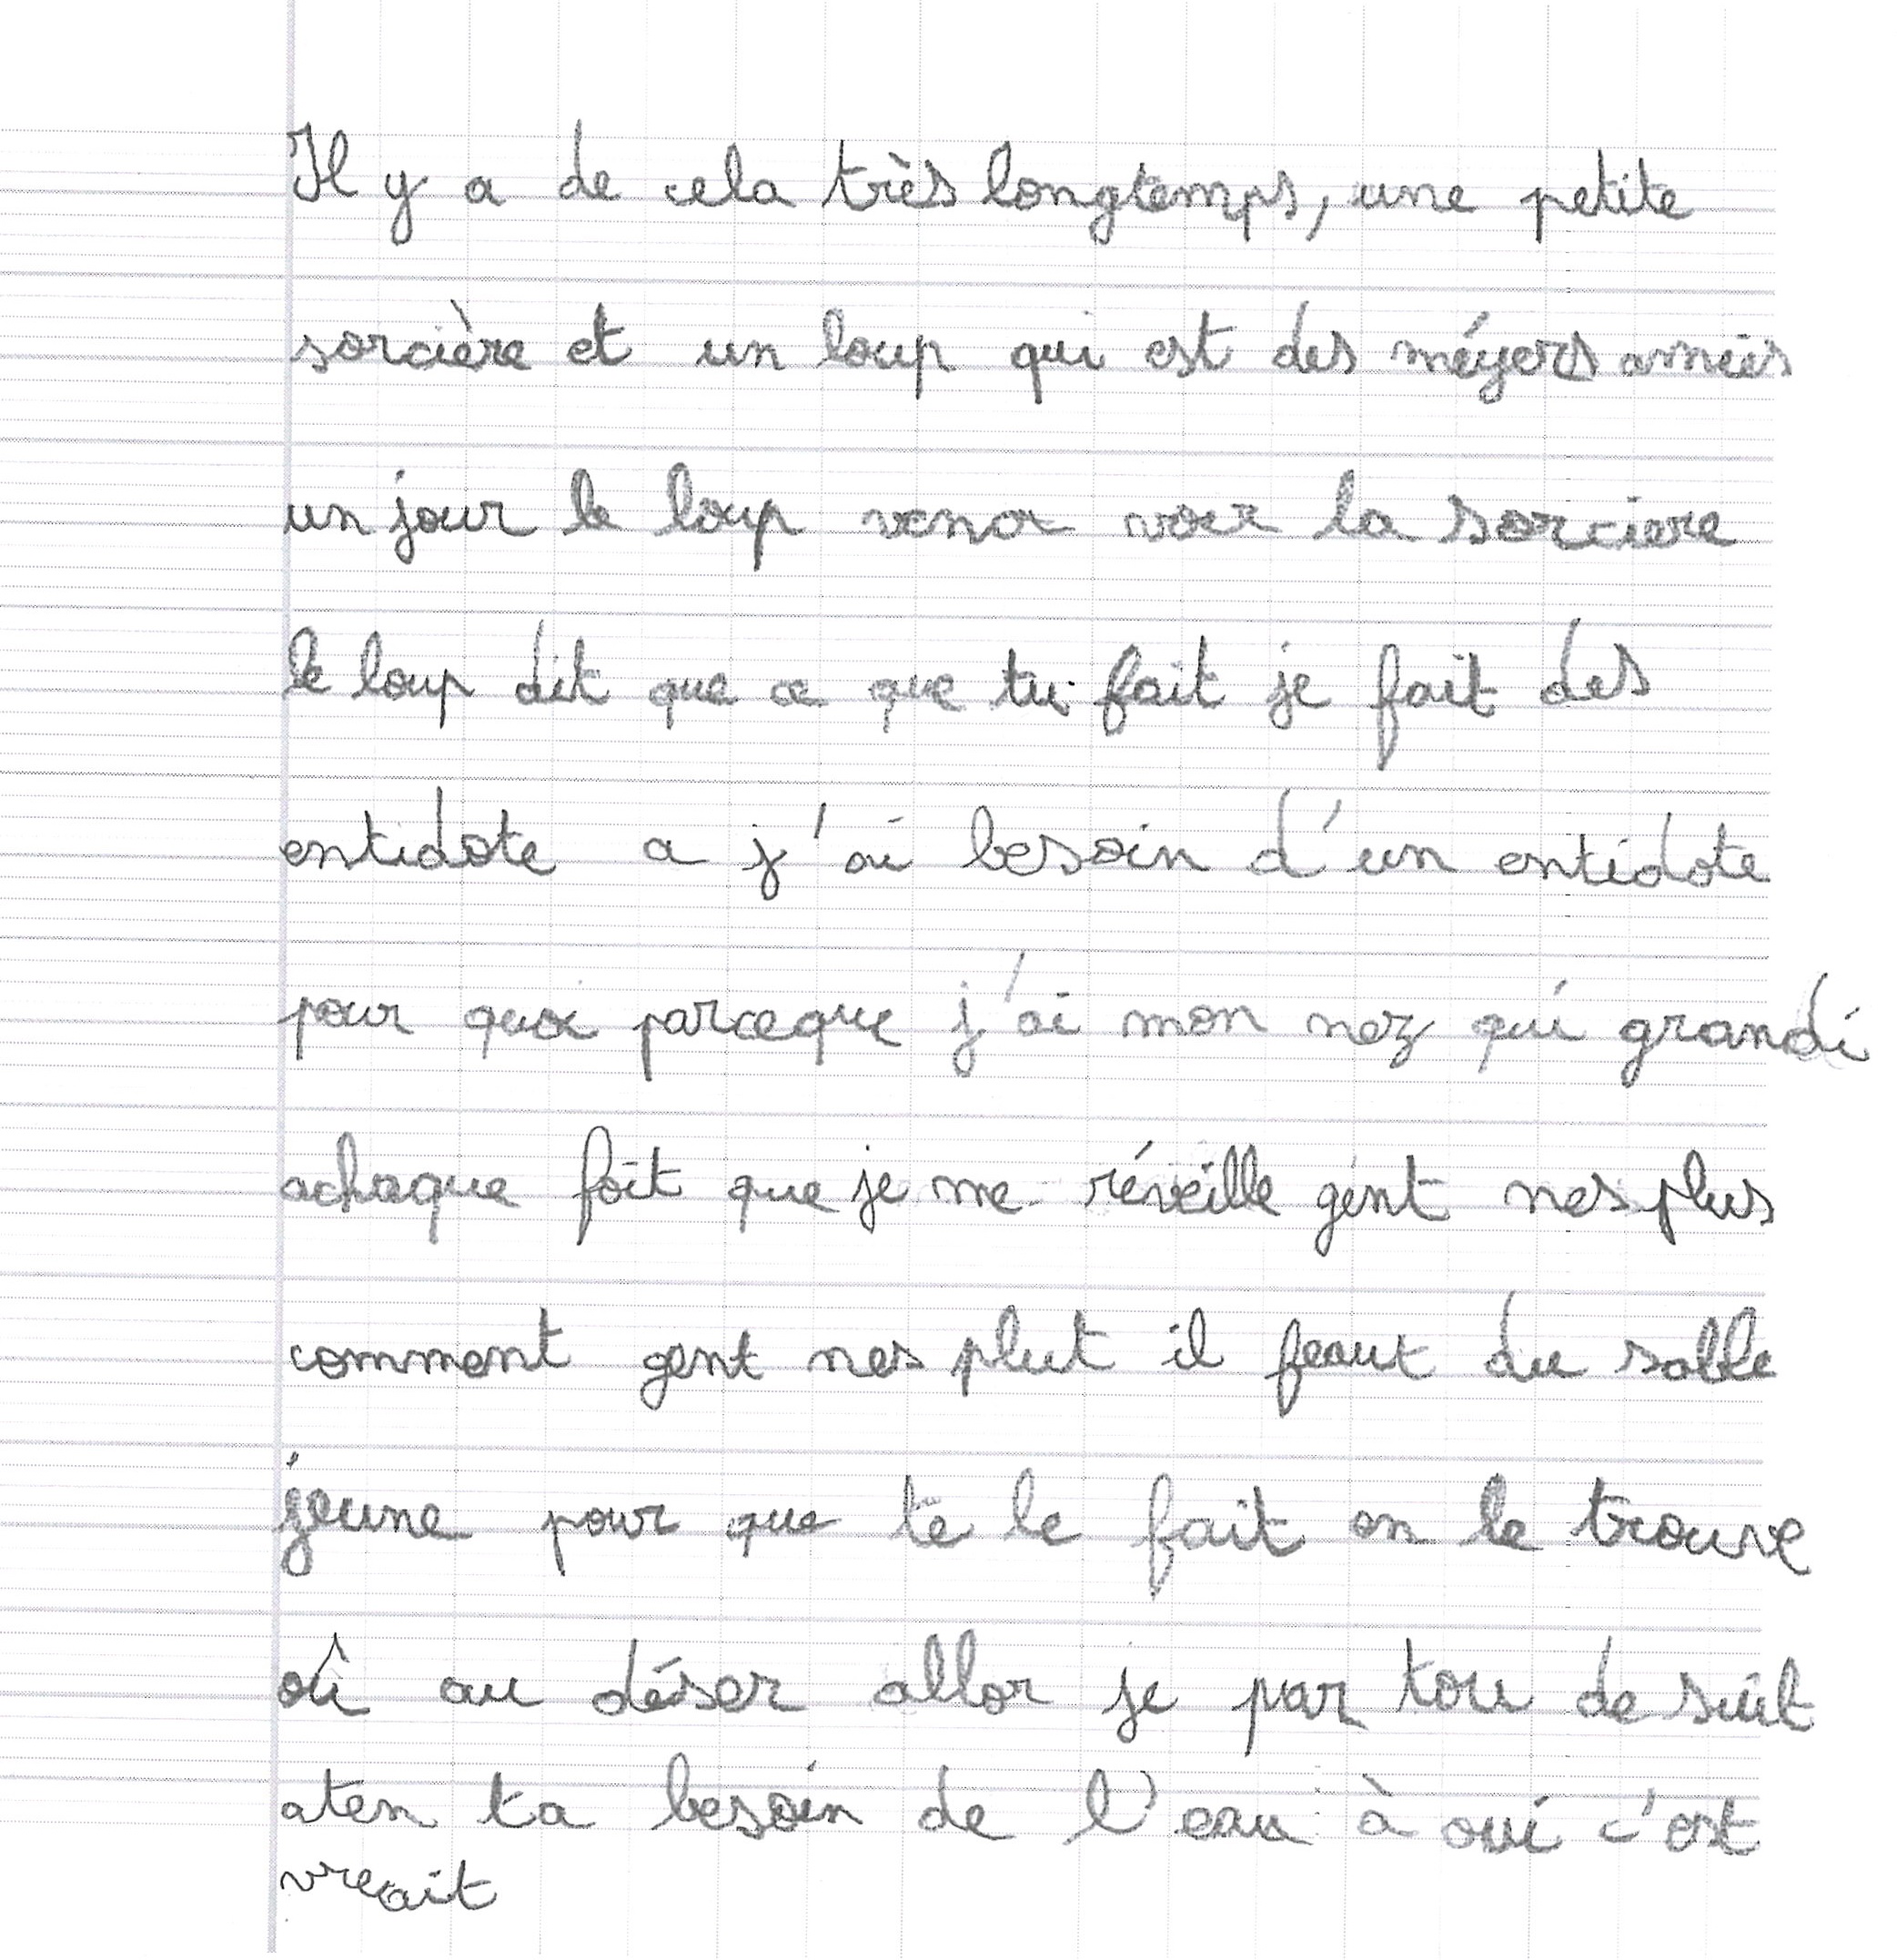 Il y a de cela très longtemps, une petite
sorcière et un loup qui est des méyers amies
un jour le loup vena voir la sorciere
le loup dit que ce que tu fait je fait des
entidote a j'ai besoin d'un entidote
pour quoi parceque j'ai mon nez qui grandi
achaque foit que je me réveille gént nes plus
comment gent nes plut il feaut du salle
jeune pour que te le fait on le trouve
où au déser allor je par tou de suit
aten ta besoin de l'eau à oui c'est
vreait